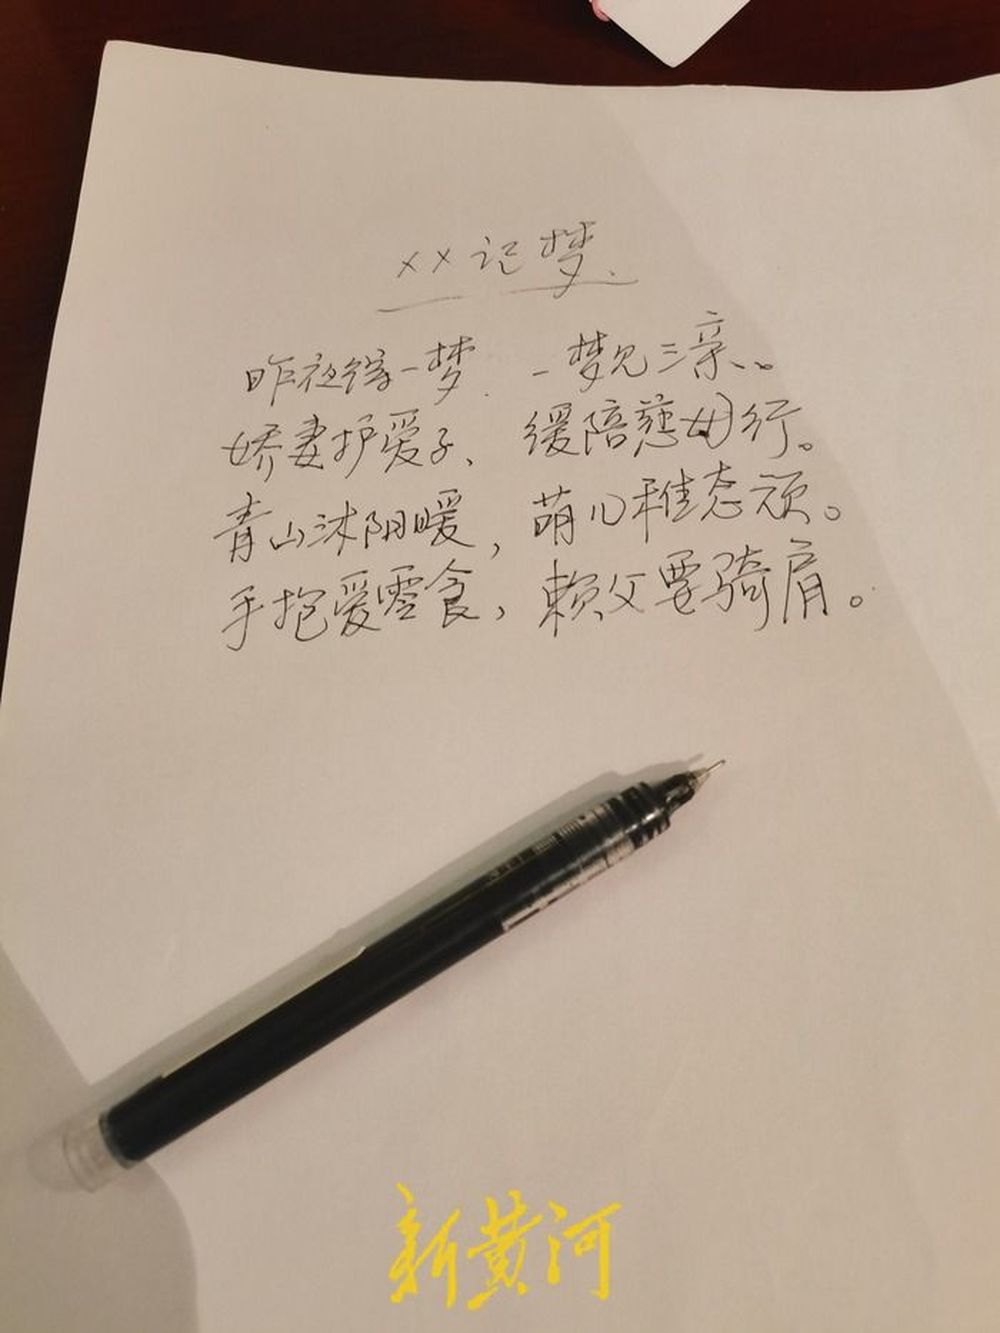 ××记梦
昨夜缘一梦. 一梦见三亲。
娇妻护爱子、缓陪慈母行。
青山沐阳暖，萌儿稚态顽。
手抱爱零食，赖父要骑肩。
新黄河